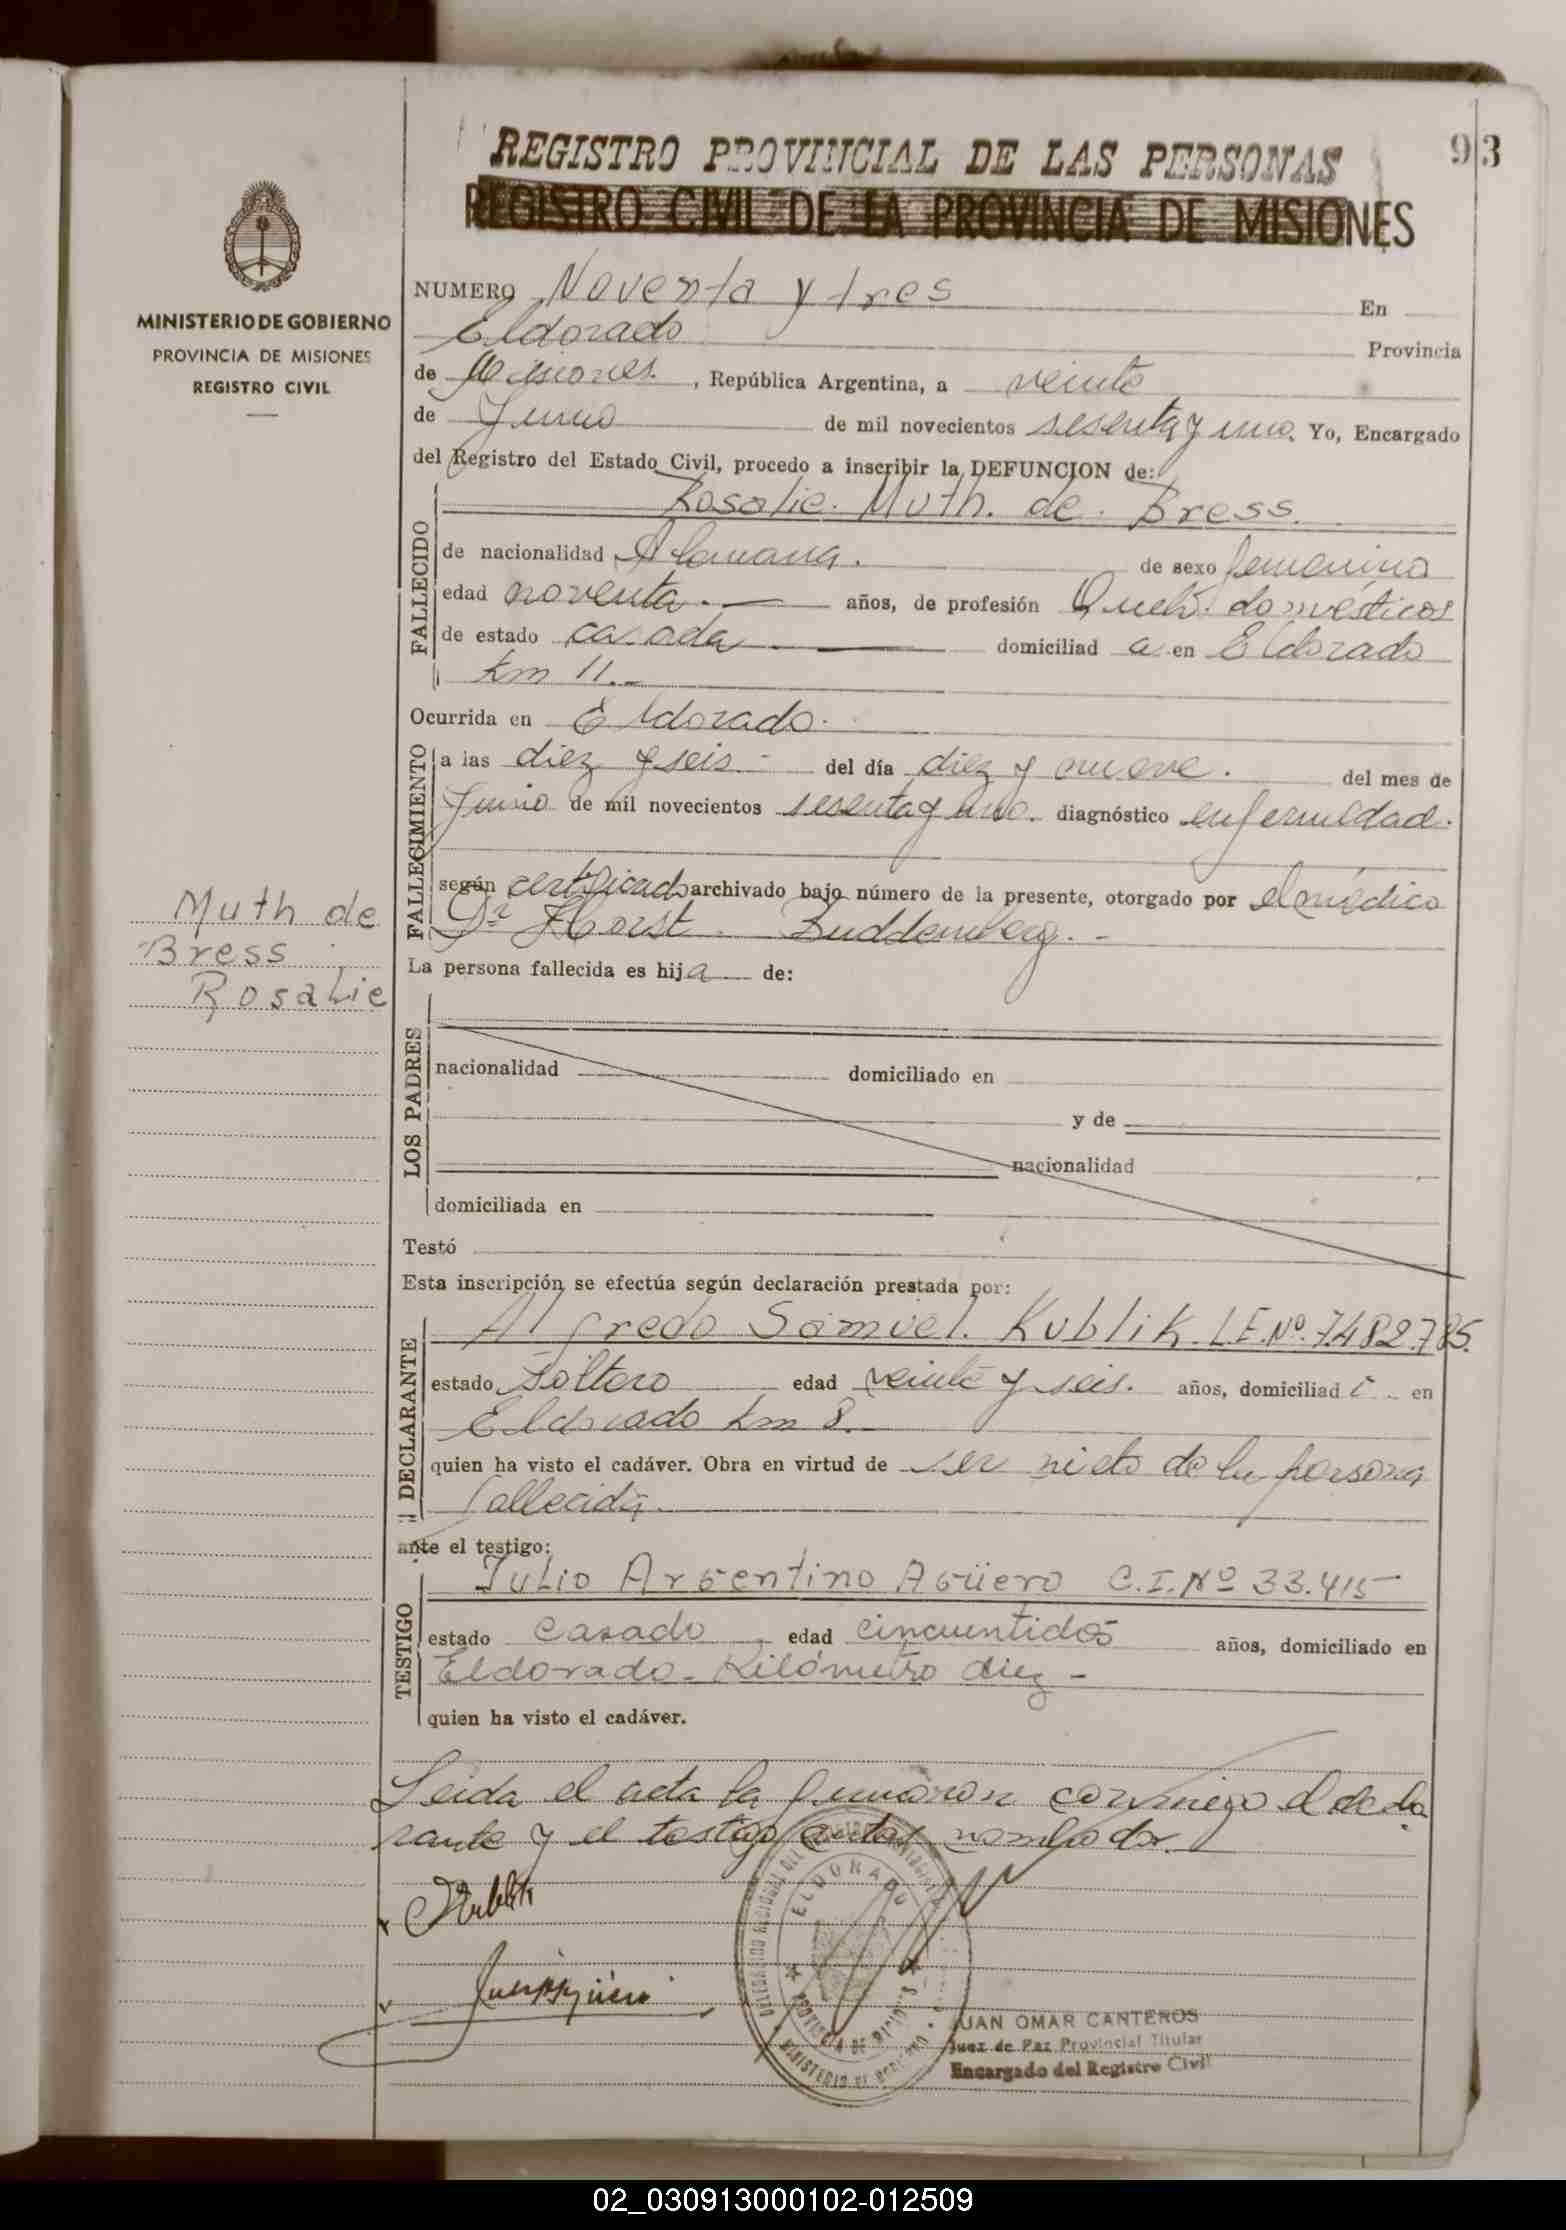 REGISTRO PROVINCIAL DE LAS PERSONAS
93
REGISTRO CIVIL DE LA PROVINCIA DE MISIONES
MINISTERIO DE GOBIERNO
PROVINCIA DE MISIONES
REGISTRO CIVIL
NUMERO Noventa y tres En
Eldorado Provincia
de Misiones. , República Argentina, a veinte
de Junio de mil novecientos sesenta y uno. Yo, Encargado
del Registro del Estado Civil, procedo a inscribir la DEFUNCION de:
Rosalie. Muth. de. Bress.
FALLECIDO
de nacionalidad Alemana. de sexo femenino
edad noventa. — años, de profesión Queh. domésticos
de estado casada — domiciliad a en Eldorado
km 11.-
Ocurrida en Eldorado.
FALLECIMIENTO
a las diez y seis - del día diez y nueve. del mes de
Junio de mil novecientos sesenta y uno. diagnóstico enfermedad.
según certificado archivado bajo número de la presente, otorgado por el médico
Dr Horst. Buddemberg. -
Muth de
Bress
Rosalie
La persona fallecida es hija de:
LOS PADRES
nacionalidad domiciliado en
y de
nacionalidad
domiciliada en
Testó
Esta inscripción se efectúa según declaración prestada por:
DECLARANTE
Alfredo Samuel. Kublik. L.E.Nº.7.482.785.
estado soltero edad veinte y seis. años, domiciliad o en
Eldorado km 8.-
quien ha visto el cadáver. Obra en virtud de ser nieto de la persona
fallecida.
ante el testigo:
TESTIGO
Julio Argentino Agüero C.I.Nº 33.415
estado casado edad cincuentidós años, domiciliado en
Eldorado - Kilómetro diez -
quien ha visto el cadáver.
Leida el acta la firmaron conmigo el decla
rante y el testigo antes nombrados.
Kublik
ELDORADO
PROVINCIA DE MISIONES
JUAN OMAR CANTEROS
Juez de Paz Provincial Titular
Encargado del Registro Civil
02_030913000102-012509